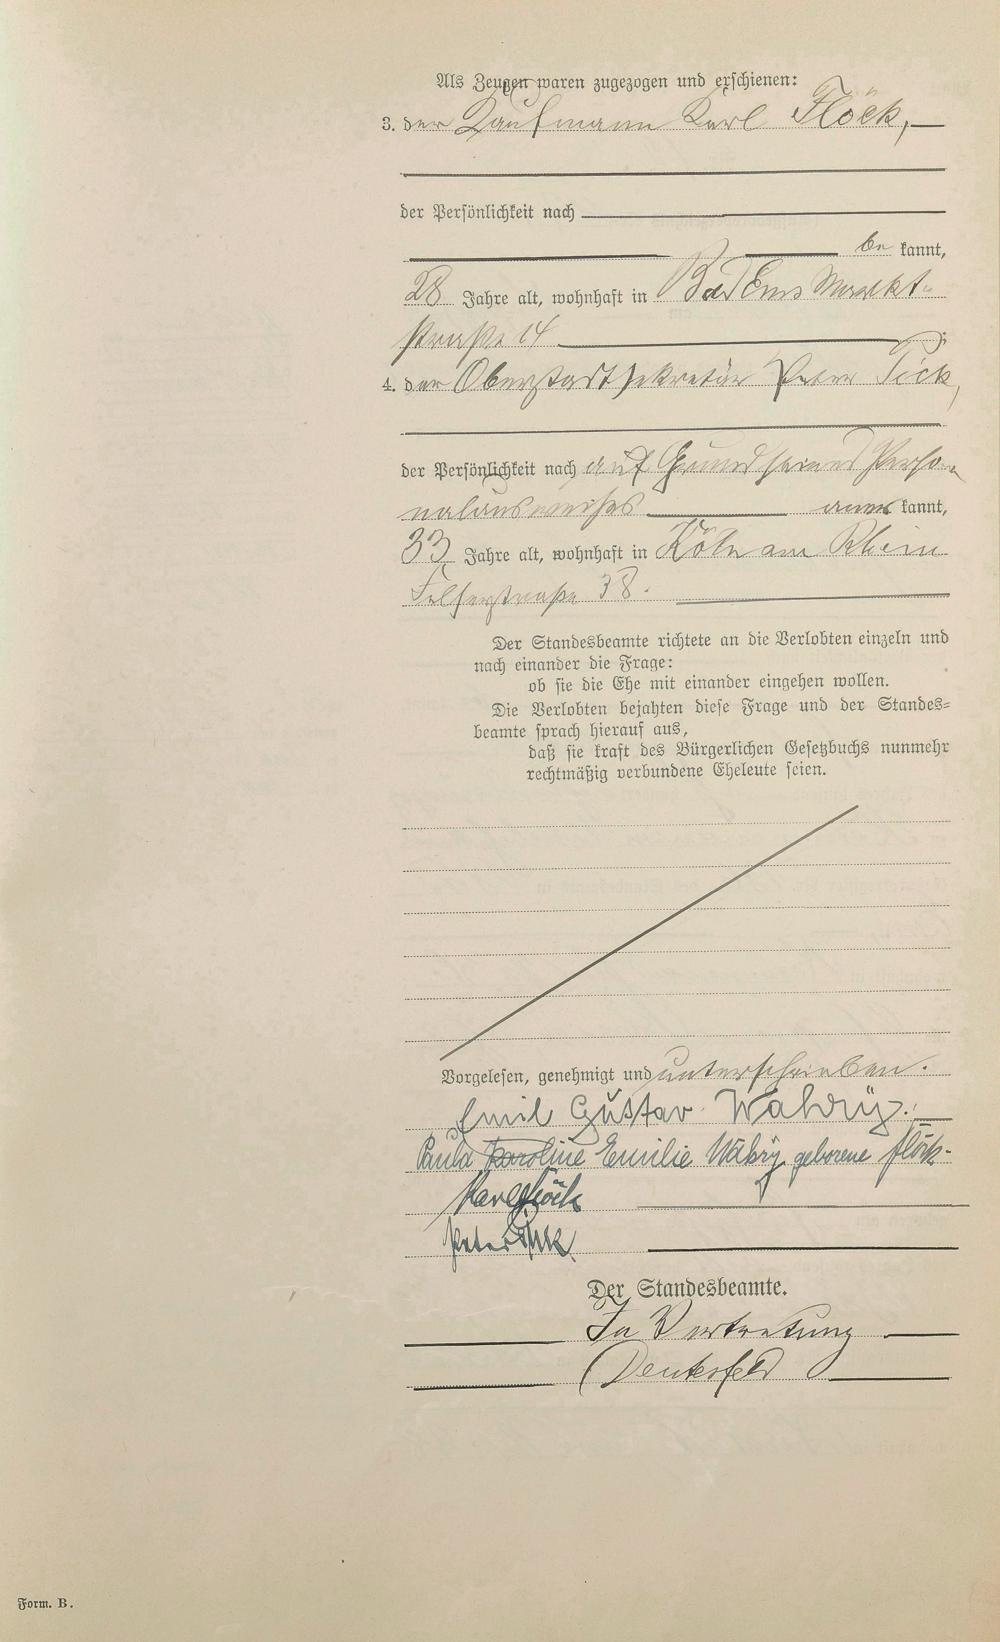 Als Zeugen waren zugezogen und erschienen:
3. der Kaufmann Karl Flöck,
der Persönlichkeit nach
be kannt,
28 Jahre alt, wohnhaft in Bad Ems Markt-
straße 14
4. der Oberstadtsekretär Peter Pick,
der Persönlichkeit nach auf Grund seines Perso-
nalausweises aner kannt,
33 Jahre alt, wohnhaft in Köln am Rhein
straße 38.
Der Standesbeamte richtete an die Verlobten einzeln und
nach einander die Frage:
ob sie die Ehe mit einander eingehen wollen.
Die Verlobten bejahten diese Frage und der Standes=
beamte sprach hierauf aus,
daß sie kraft des Bürgerlichen Gesetzbuchs nunmehr
rechtmäßig verbundene Eheleute seien.
Vorgelesen, genehmigt und unterschrieben.
Emil Gustav
Paula Karoline Emilie geborene Flöck.
Karl Flöck
Peter Pick
Der Standesbeamte.
In Vertretung